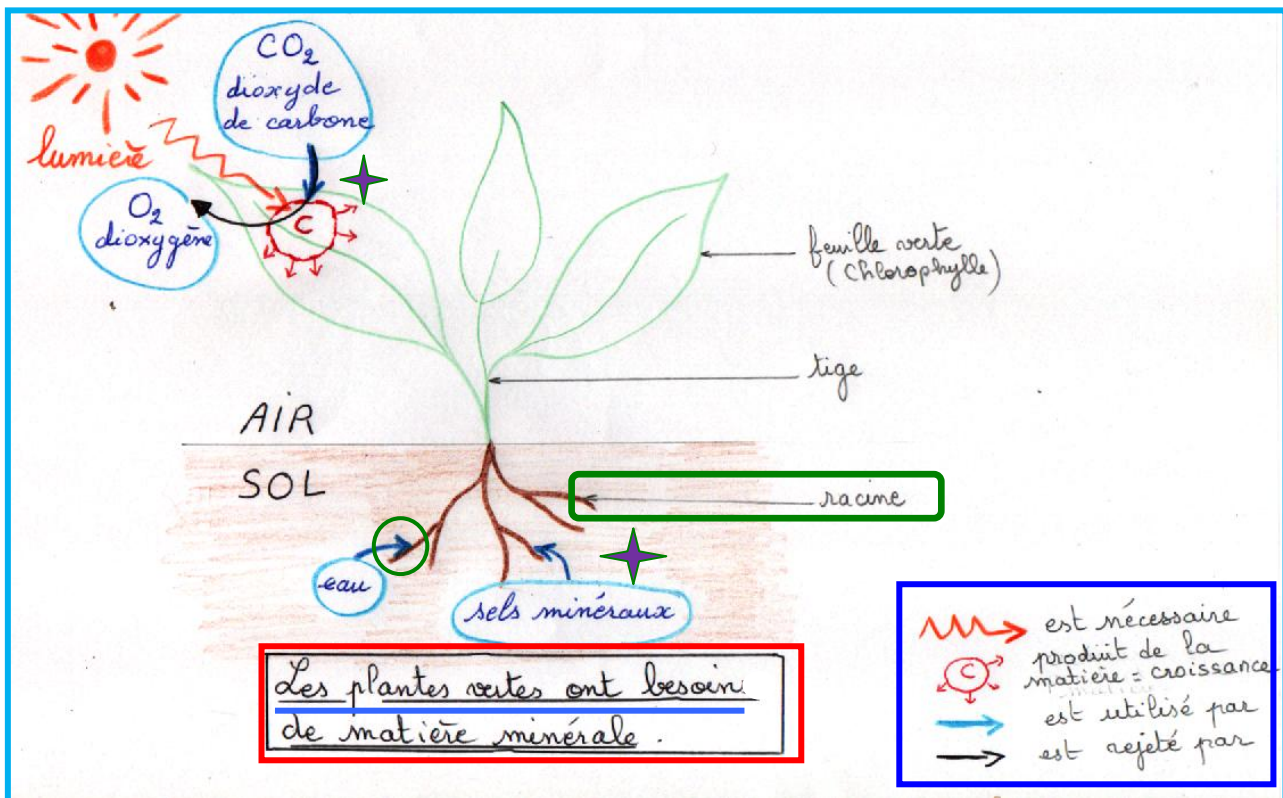 CO2
dioxyde
de carbone
lumière
O2
dioxygène
C
feuille verte
(Chlorophylle)
tige
AIR
SOL
racine
eau
sels minéraux
Les plantes vertes ont besoin
de matière minérale.
est nécessaire
C
produit de la
matière = croissance
est utilisé par
est rejeté par